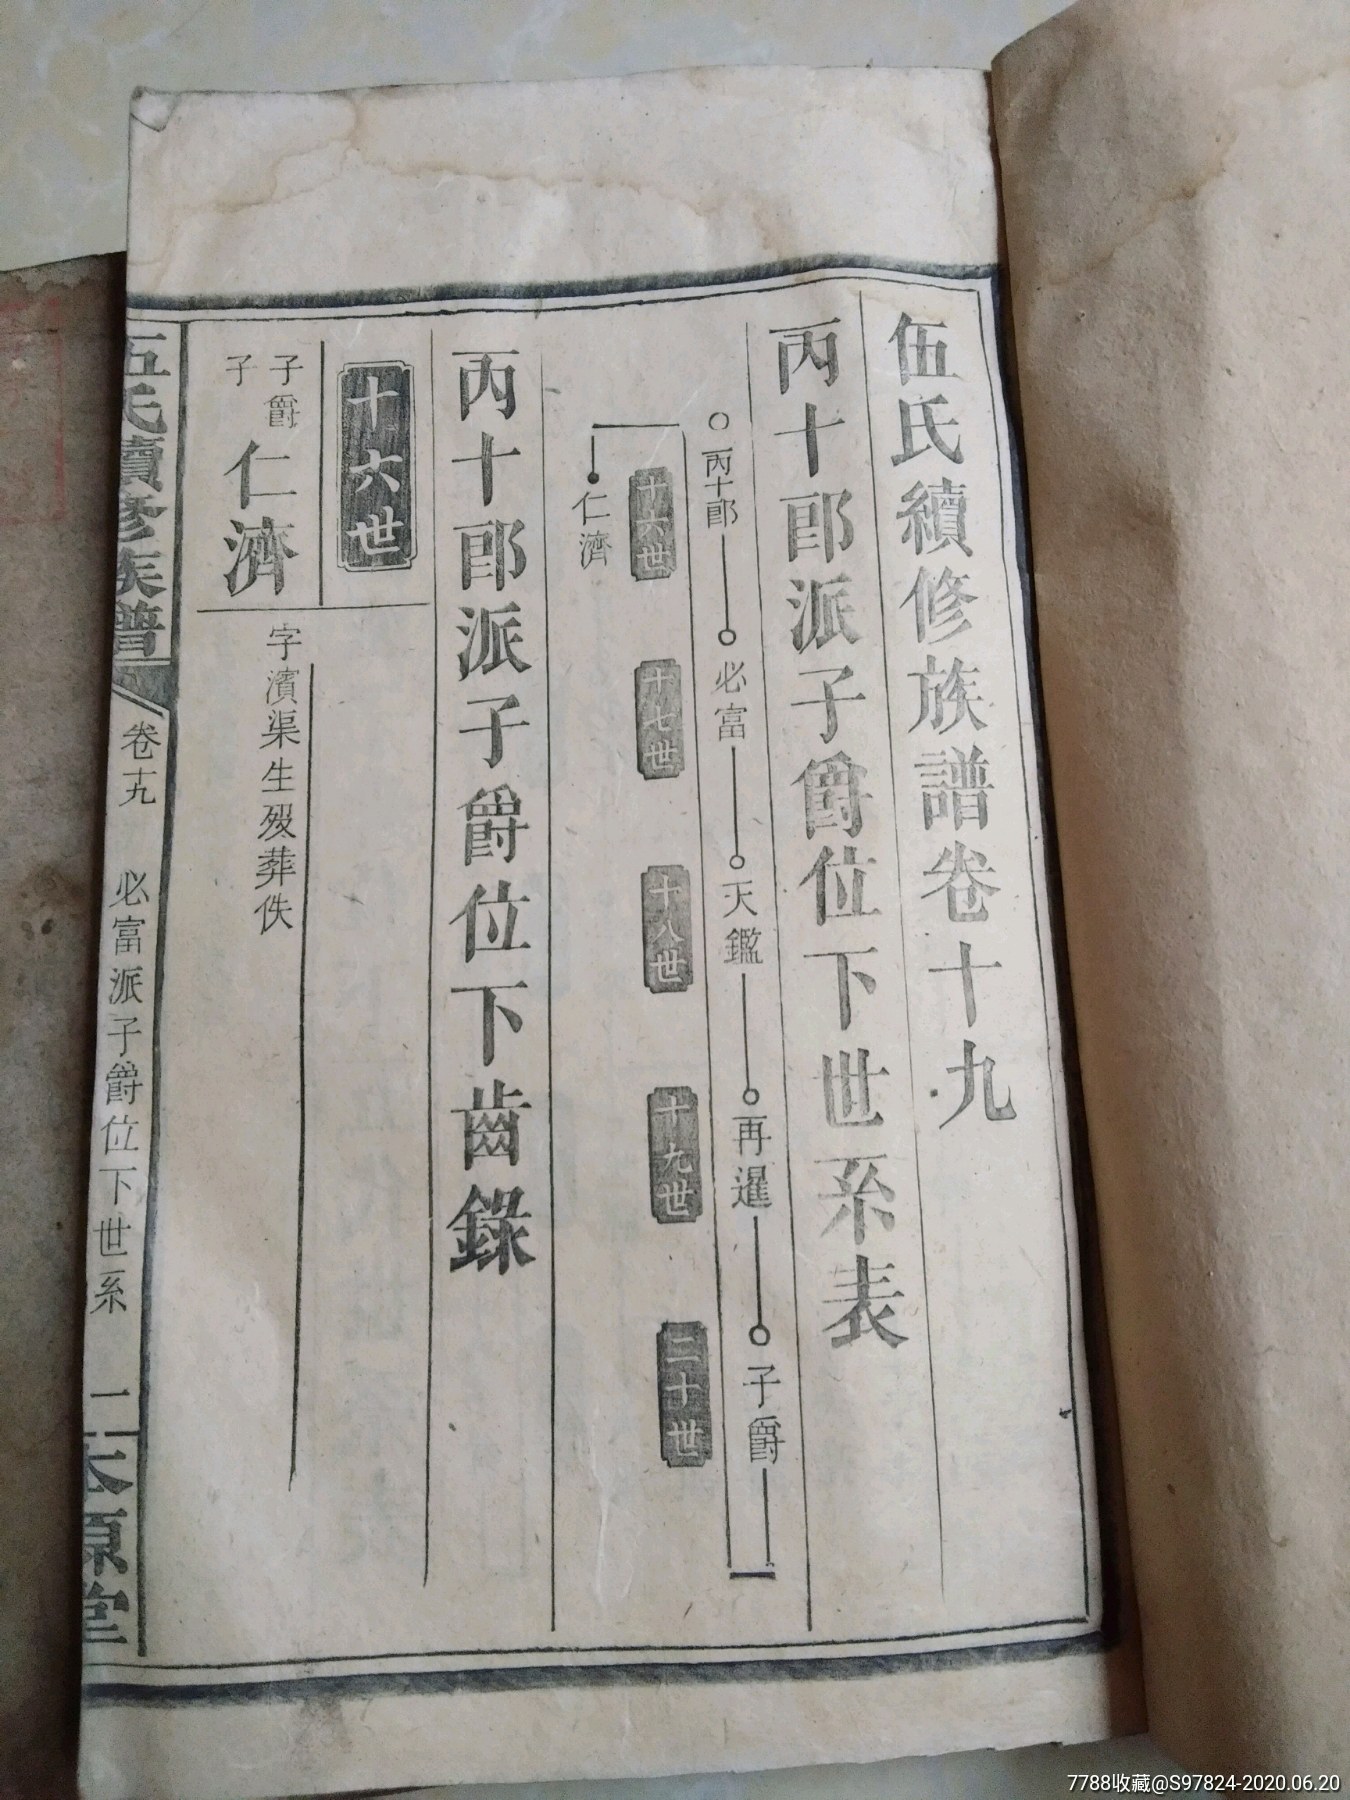 伍氏續修族譜卷十九
丙十郎派子爵位下世系表
丙十郎 必富 天鑑 再暹 子爵
十六世 十七世 十八世 十九世 二十世
仁濟
丙十郎派子爵位下齒錄
十六世
子爵
子
仁濟
字濱渠生歿葬佚
伍氏續修族譜 卷十九 必富派子爵位下世系 一 本原堂
7788收藏@S97824-2020.06.20